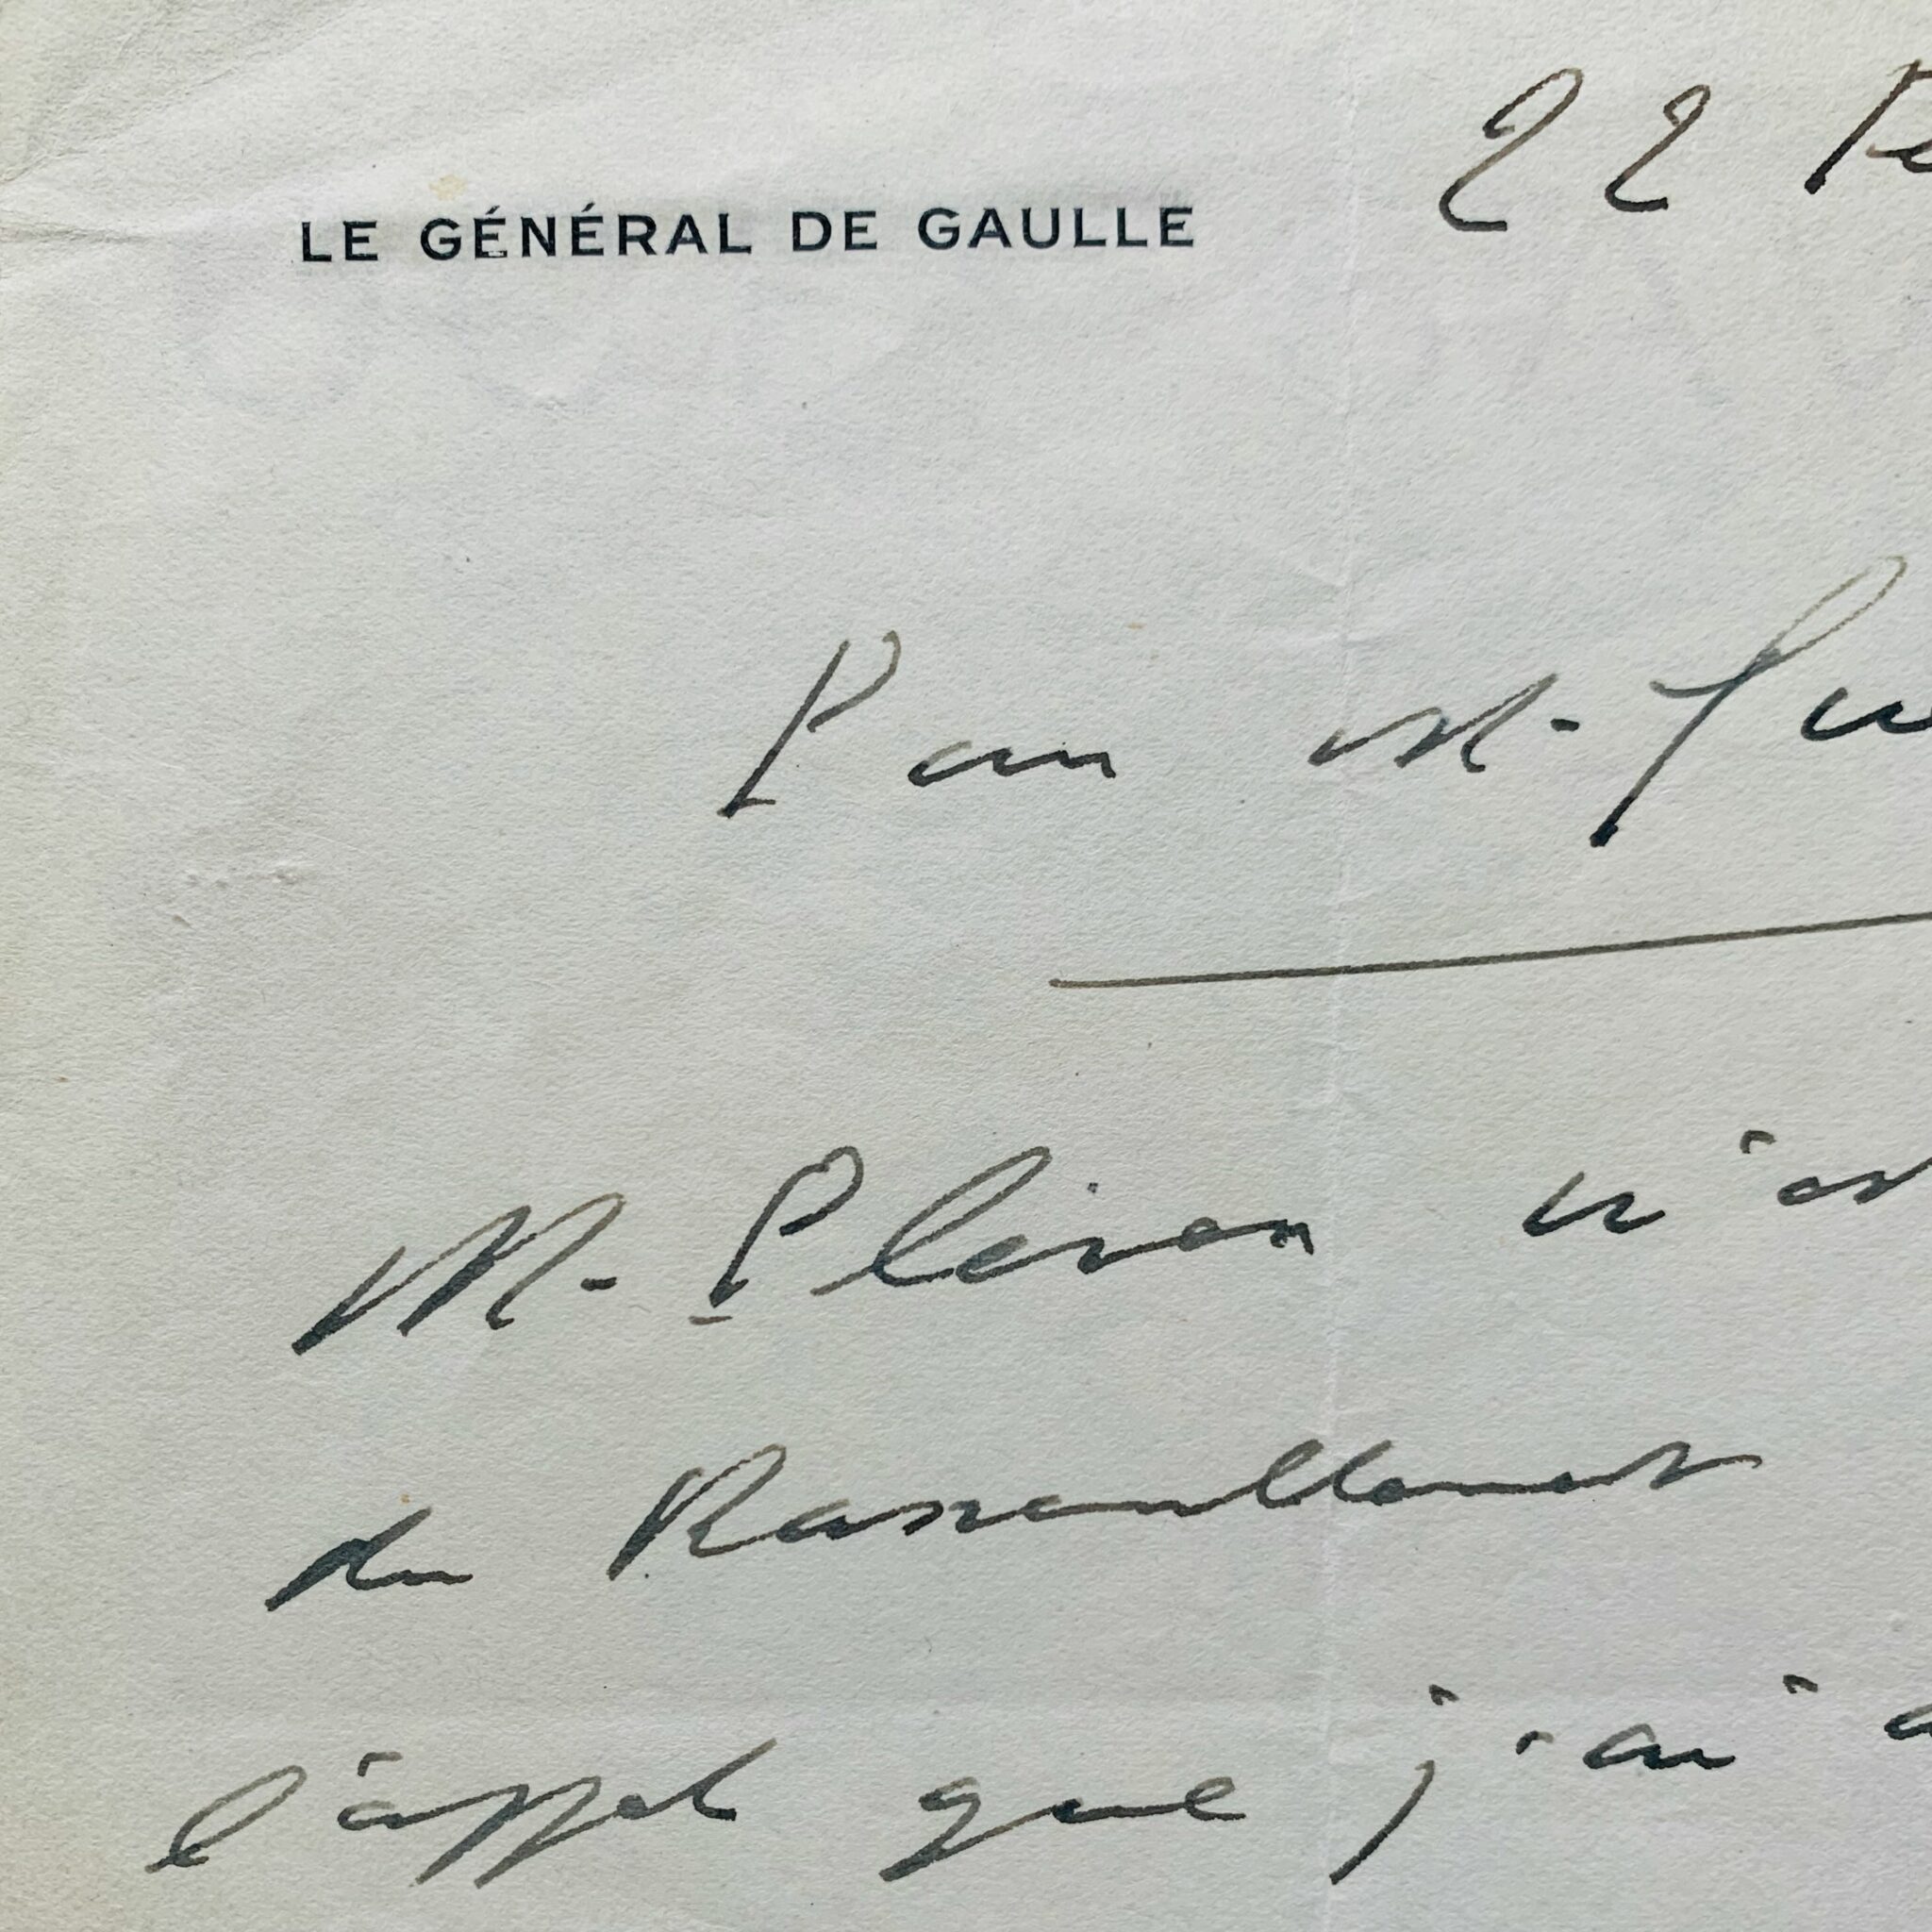 22 Fe
LE GÉNÉRAL DE GAULLE
Pour M.
M. Pleven n'es
du Rassemblement
l'appel que j'ai